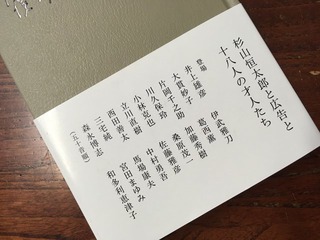 杉山恒太郎と広告と
十八人の才人たち
登場
井上雄彦 伊武雅刀
大貫妙子 葛西薫
片岡千之助 加藤秀樹
川久保玲 桑原茂一
小林克也 佐藤雅彦
立川直樹 中村勇吾
西田善太 馬場康夫
三宅純 宮田まゆみ
森永博志 和多利恵津子
(五十音順)